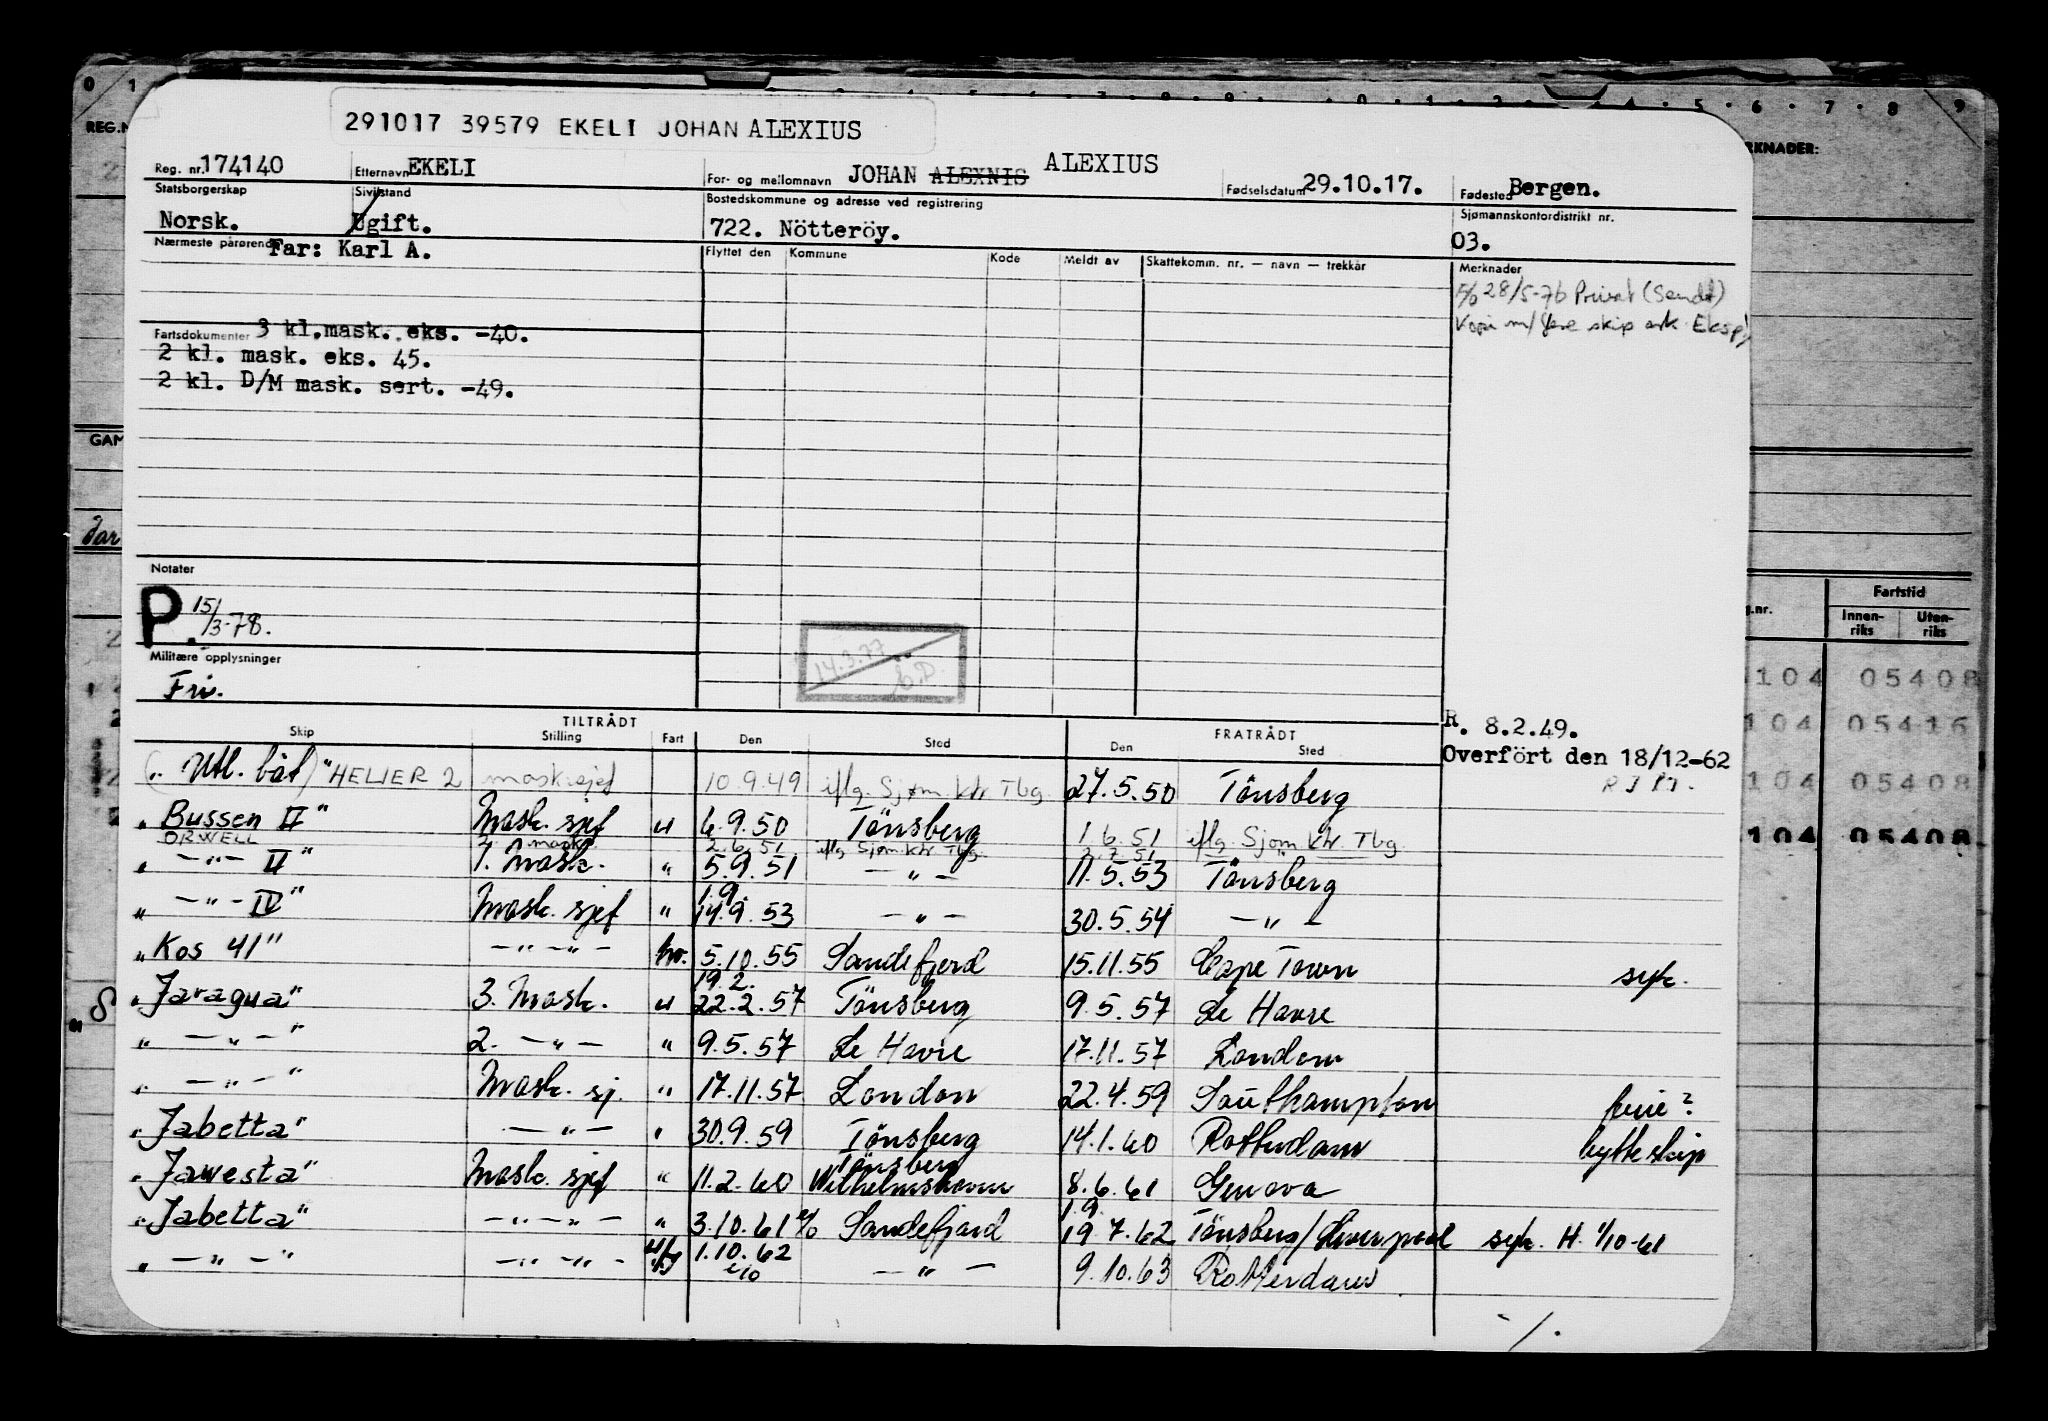 291017 39579 EKELI JOHAN ALEXIUS
Reg. nr. 174140 Etternavn EKELI For- og mellomnavn JOHAN ALEXNIS ALEXIUS Fødselsdatum 29.10.17. Fødested Bergen.
Statsborgerskap Norsk. Sivilstand Ugift. Bostedskommune og adresse ved registrering 722. Nötteröy. Sjømannskontordistrikt nr. 03.
Nærmeste pårørende Far: Karl A.
Flyttet den Kommune Kode Meldt av Skattekomm. nr. — navn — trekkår Merknader
28/5-76 Privat (Sendt)
Kopi m/ skip ark. Eksp)
Fartsdokumenter 3 kl. mask. eks. -40.
2 kl. mask. eks. 45.
2 kl. D/M mask. sert. -49.
Notater
P. 15/3-78.
14.3.77
Militære opplysninger
Fri.
R. 8.2.49.
Overfört den 18/12-62
TILTRÅDT FRATRÅDT
Skip Stilling Fart Den Sted Den Sted
(" Utl. båt) "HELIER 2 maskinsjef 10.9.49 iflg. Sjøm. ktr Tbg. 27.5.50 Tönsberg
"Bussen II" Mask. sjef " 6.9.50 Tönsberg 1.6.51 iflg. Sjøm. ktr. Tbg.
ORWELL mask 2.6.51 iflg Sjøm. ktr. Tbg. 2.7.51
" —"— II" 1. Mask. " 5.9.51 —"— 11.5.53 Tönsberg
1.9.
" —"— IV" Mask. sjef " 14.9.53 —"— 30.5.54 —"—
"Kos 41" —"—"— hv. 5.10.55 Sandefjord 15.11.55 Cape Town syk.
19.2.
"Jaragua" 3. Mask. u 22.2.57 Tönsberg 9.5.57 Le Havre
" —"—" 2. —"— " 9.5.57 Le Havre 17.11.57 London
" —"—" Mask. sj. " 17.11.57 London 22.4.59 Southampton ferie?
"Jabetta" —"— " 30.9.59 Tönsberg 14.1.60 Rotterdam bytte skip
Tönsberg
"Jawesta" Mask. sjef " 11.2.60 Wilhelmshaven 8.6.61 Genova
1.9.
"Jabetta" —"—"— " 3.10.61 Sandefjord 19.7.62 Tönsberg/Liverpool syk. H. 1/10-61
" —"—" —"—"— 1.10.62 —"— 9.10.63 Rotterdam
-/.
REG.N
RKNADER:
GAM
Far
g.nr. Fartstid
Innen-riks Uten-riks
104 05408
104 05416
104 05408
104 05408